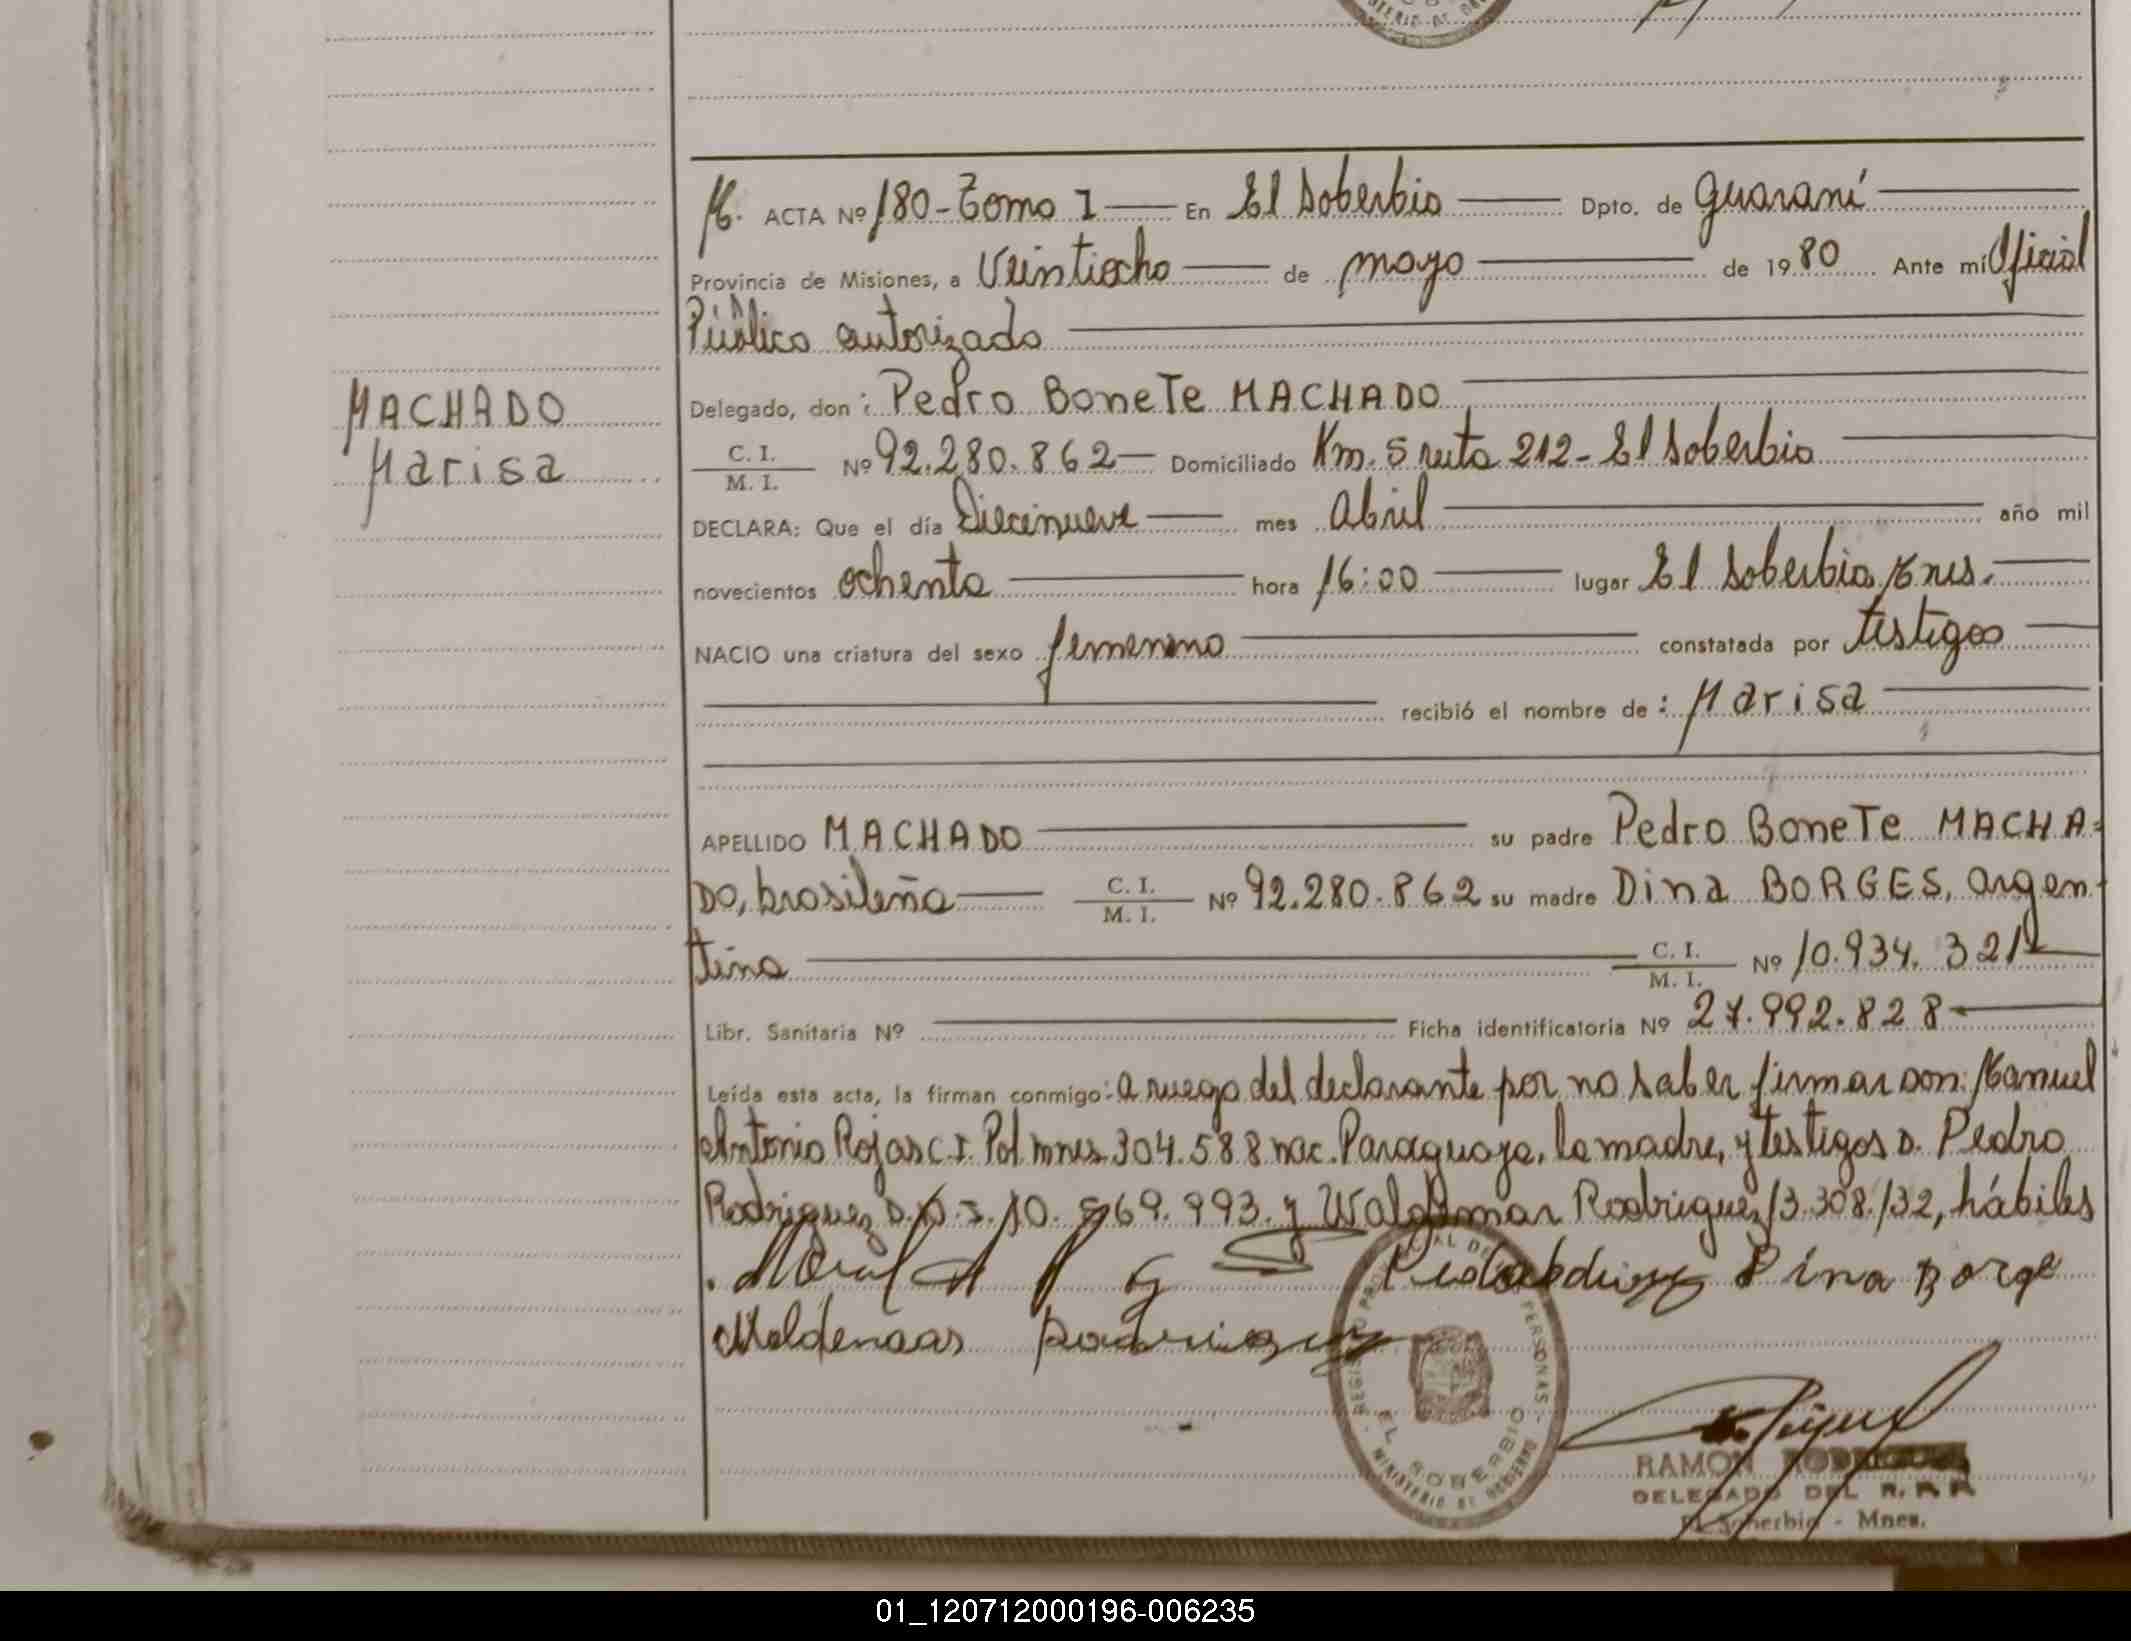 M. ACTA Nº 180-Tomo I En El Soberbio Dpto. de Guaraní
Provincia de Misiones, a Veintiocho de mayo de 1980 Ante mí Oficial
Público autorizado
MACHADO
Marisa
Delegado, don: Pedro Bonete MACHADO
C. I.
M. I. Nº 92.280.862 Domiciliado Km. 5 ruta 212 - El Soberbio
DECLARA: Que el día Diecinueve mes Abril año mil
novecientos ochenta hora 16:00 lugar El Soberbio, Mnes.
NACIO una criatura del sexo femenino constatada por testigos
recibió el nombre de: Marisa
APELLIDO MACHADO su padre Pedro Bonete MACHA-
DO, brasileña C. I. M. I. Nº 92.280.862 su madre Dina BORGES, argen-
tina C. I. M. I. Nº 10.934.321
Libr. Sanitaria Nº Ficha identificatoria Nº 27.992.828
Leída esta acta, la firman conmigo: a ruego del declarante por no saber firmar don: Manuel
Antonio Rojas C.I. Pol. Mnes. 304.588 nac. Paraguaya, la madre, y testigos D. Pedro
Rodriguez D.N.I. 10.569.993. y Waldemar Rodriguez 13.308.132, hábiles
Dina Borge
Maldenaas
REGISTRO PROVINCIAL DE PERSONAS
EL SOBERBIO
MINISTERIO DE GOBIERNO
RAMON RODRIGUEZ
DELEGADO DEL R.
El Soberbio - Mnes.
01_120712000196-006235